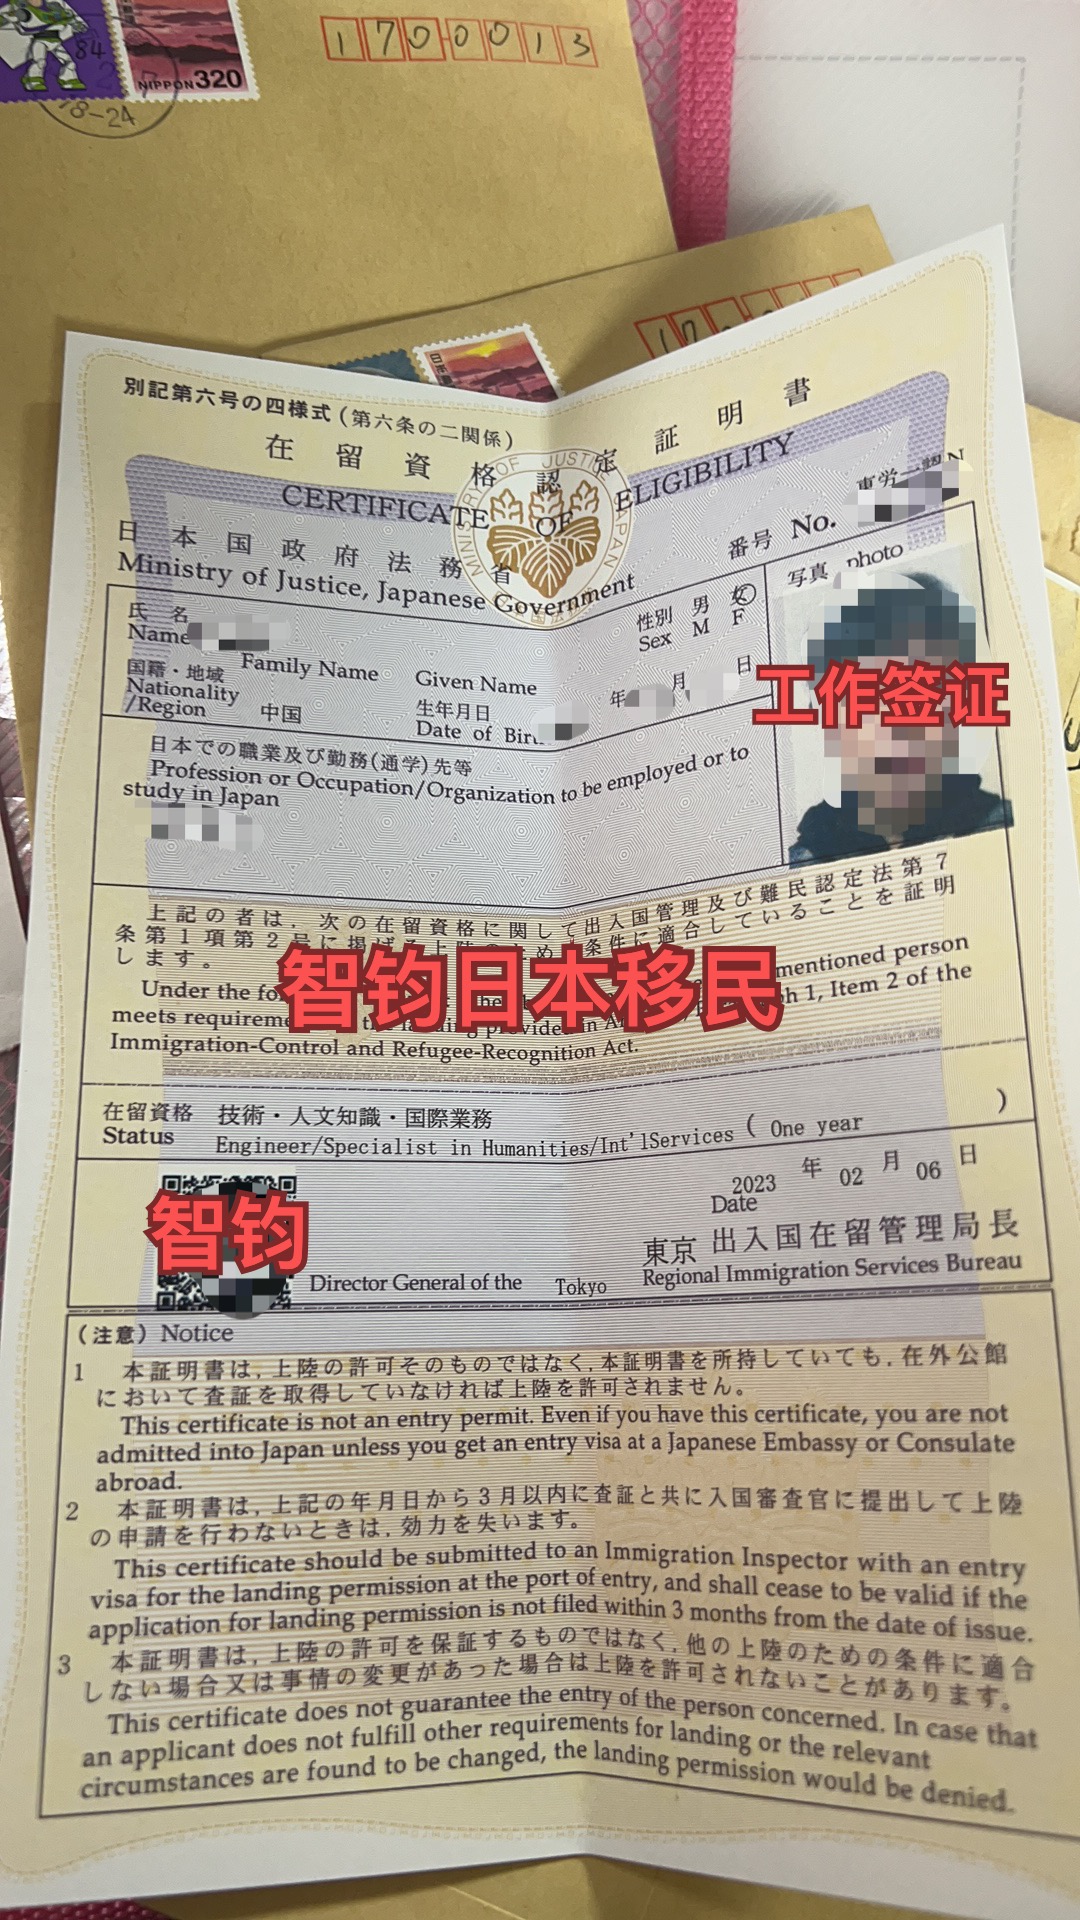 1700013
84
NIPPON 320
18-24
別記第六号の四様式(第六条の二関係)
在留資格認定証明書
CERTIFICATE OF ELIGIBILITY
MINISTRY OF JUSTICE JAPAN
日本国政府法務省
Ministry of Justice, Japanese Government
番号 No. 東労
氏名
Name
Family Name Given Name
性別 男 女
Sex M F
写真 photo
国籍・地域
Nationality
/Region 中国
生年月日 年 月 日
Date of Birt
工作签证
日本での職業及び勤務(通学)先等
Profession or Occupation/Organization to be employed or to
study in Japan
上記の者は、次の在留資格に関して出入国管理及び難民認定法第7
条第1項第2号に掲げる上陸のため 条件に適合していることを証明
します。
智钧日本移民
Under the fo mentioned person
meets requireme landing provided in ph 1, Item 2 of the
Immigration-Control and Refugee-Recognition Act.
在留資格 技術・人文知識・国際業務
Status Engineer/Specialist in Humanities/Int'lServices ( One year )
2023 年 02 月 06 日
Date
智钧
東京 出入国在留管理局長
Director General of the Tokyo Regional Immigration Services Bureau
(注意) Notice
1 本証明書は、上陸の許可そのものではなく、本証明書を所持していても、在外公館
において査証を取得していなければ上陸を許可されません。
This certificate is not an entry permit. Even if you have this certificate, you are not
admitted into Japan unless you get an entry visa at a Japanese Embassy or Consulate
abroad.
2 本証明書は、上記の年月日から3月以内に査証と共に入国審査官に提出して上陸
の申請を行わないときは、効力を失います。
This certificate should be submitted to an Immigration Inspector with an entry
visa for the landing permission at the port of entry, and shall cease to be valid if the
application for landing permission is not filed within 3 months from the date of issue.
3 本証明書は、上陸の許可を保証するものではなく、他の上陸のための条件に適合
しない場合又は事情の変更があった場合は上陸を許可されないことがあります。
This certificate does not guarantee the entry of the person concerned. In case that
an applicant does not fulfill other requirements for landing or the relevant
circumstances are found to be changed, the landing permission would be denied.